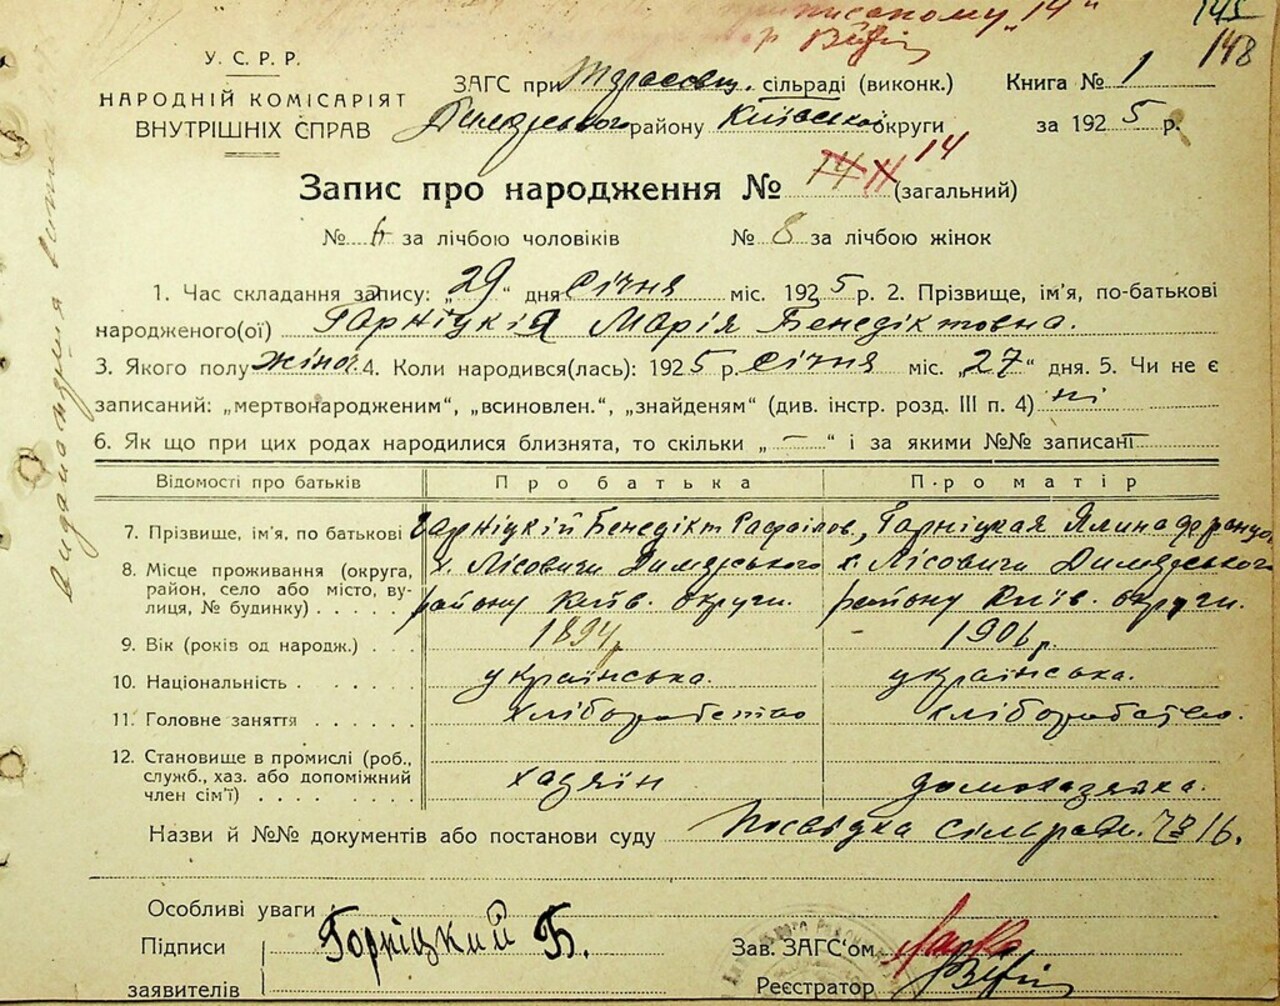 приписному "14"
145
148
У. С. Р. Р.
НАРОДНІЙ КОМІСАРІЯТ
ВНУТРІШНІХ СПРАВ
ЗАГС при Тарасовщ. сільраді (виконк.)
Книга № 1
Димерського району Київської округи
за 1925 р.
Запис про народження № 14 (загальний)
№ 6 за лічбою чоловіків № 8 за лічбою жінок
1. Час складання запису: „29“ дня Січня міс. 1925 р. 2. Прізвище, ім'я, по-батькові
народженого(ої) Гарніцкія Марія Бенедіктовна.
3. Якого полу жіноч. 4. Коли народився(лась): 1925 р. Січня міс. „27“ дня. 5. Чи не є
записаний: „мертвонародженим“, „всиновлен.“, „знайденям“ (див. інстр. розд. III п. 4) ні
6. Як що при цих родах народилися близнята, то скільки „—“ і за якими №№ записані —
Відомості про батьків Про батька Про матір
7. Прізвище, ім'я, по батькові Гарніцкій Бенедікт Рафаілов., Гарніцкая Ялина
8. Місце проживання (округа, район, село або місто, вулиця, № будинку) х. Лісовичи Димерського району Київ. округи. х. Лісовичи Димерського району Київ. округи.
9. Вік (років од народж.) 1894 р. 1906 р.
10. Національність українська. українська.
11. Головне заняття хліборобство хліборобство.
12. Становище в промислі (роб., служб., хаз. або допоміжний член сім'ї) хазяїн домохазяйка.
Назви й №№ документів або постанови суду Посвідка сільради № 16.
Особливі уваги:
Підписи заявителів Горніцкий Б.
Зав. ЗАГС'ом
Реєстратор